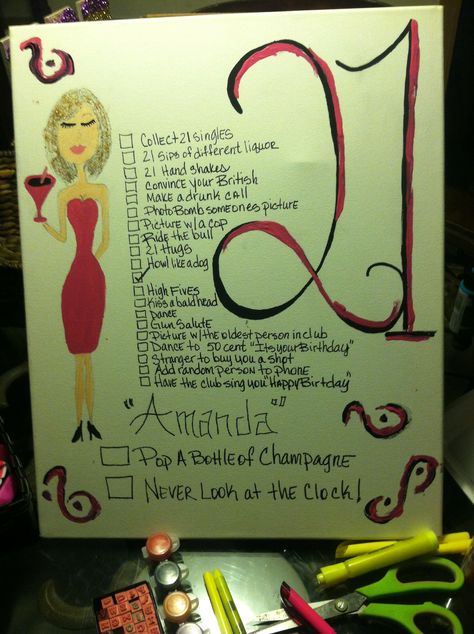 21
Collect 21 singles
21 Sips of different liquor
21 Hand shakes
Convince your British
Make a drunk call
Photo Bomb someones picture
Picture w/ a cop
Ride the bull
21 Hugs
Howl like a dog
High Fives
Kiss a bald head
Dance
Gun Salute
Picture w/ the oldest person in club
Dance to 50 cent "Its your Birthday"
Stranger to buy you a shot
Add random person to phone
Have the club sing you "Happy Birtday"
"Amanda"
Pop A Bottle of Champagne
Never Look at the Clock!